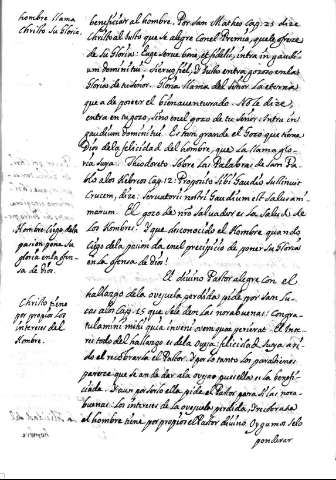 hombre llama
Christo Su Gloria.
beneficiar al hombre. Por San Matheo cap. 25 dize
Christo al Justo que se alegre con el Premio, que le ofreze
de Su Gloria: Euge serve bone, et fidelis, intra in gaudi-
um domini tui. Siervo fiel, i bueno entra gozoso en las
Glorias de tu Señor. Gloria llama del Señor la eterna
que a de poseer el bienaventurado. No le dize,
entra en tu gozo, sino en el gozo de tu Señor. Intra in
gaudium domini tui. Es tan grande el Gozo que tiene
Dios de la felicidad del hombre, que la llama glo-
ria Suya. Theodoreto Sobre las Palabras de San Pa-
blo a los Hebreos cap. 12: Proposito Sibi Gaudio sustinuit
Crucem, dize: Servatoris nostri Gaudium est Salus ani-
marum. El gozo de nuestro Salvador es la Salud de
los Hombres. I que desconocido el Hombre quando
Ciego de la pasion da en el precipicio de poner Su Gloria
en la ofensa de Dios!
Hombre ciego de la
pasion pone Su
gloria en la ofen-
sa de Dios.
El divino Pastor alegre con el
hallazgo de la ovejuela perdida pide por San Lu-
cas al cap. 15 que se le den las norabuenas: Congra-
tulamini mihi quia inveni ovem quae perierat. El Inte-
res todo del hallazgo es de la oveja: felicidad Suya a si-
do el recobrarla el Pastor. I por lo tanto los parabienes
pareze que se an de dar a la oveja pues ella es la benefi-
ciada.
Christo tiene
por propios los
intereses del
Hombre.
buenas. Los intereses de la ovejuela perdida, i recobrada
el hombre tiene por propios el Pastor divino. Oygamos Selo
ponderar